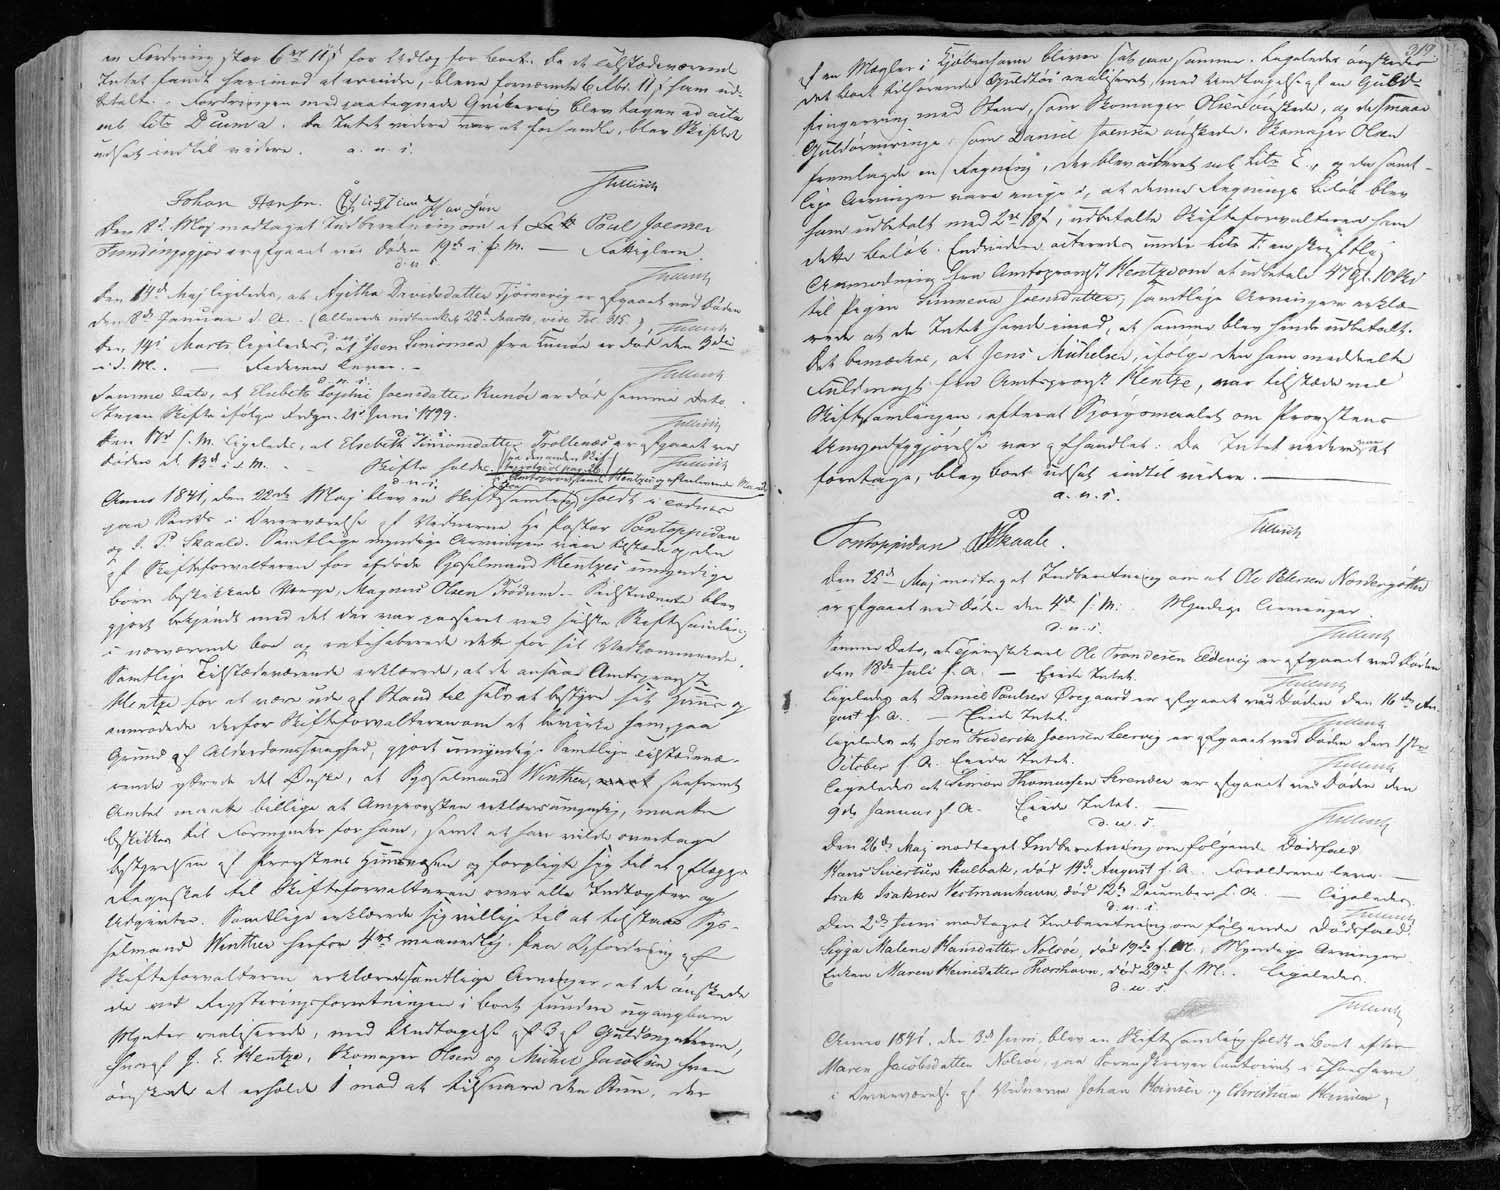 en Fordring stor 6 rd 11 s for Udlæg for Boet. Da de Tilstedeværende
Intet fandt herimod at erindre, blev fornævnte 6 Rbr. 11 s ham ud-
betalt. Fordringen med paategnede Qvittering blev lagen ad acta
sub Litr D. Da Intet videre var at forhandle, blev Skiftet
udsat indtil videre. a. u. s.
Tillisch
Johan Hansen. Christian Hansen
Den 8d Maj modtaget Indberetning om at Paul Joensen
er afgaaet ved Døden 19de f. M. — Fattiglem.
d. u. s.
Tillisch
Den 14d Maj ligeledes, at Agitha Davidsdatter Tjørnevig er afgaaet ved Døden
den 8d Januar d. A. (Allerede indberettet 25d Marts, vide Fol. 315.) Tillisch
d. u. s.
Den 14d Marts ligeledes, at Joen Simonsen fra Kunøe er død den 3die
i d. M. — Faderen lever. —
d. u. s. Tillisch
Samme Dato, at Elsebeth Sophie Joensdatter Kunøe er død samme Dato.
Ingen Skifte ifølge Frdgn. 21d Juni 1799.
d. u. s. Tillisch
Den 17d s. M. ligeledes, at Elsebeth Simonsdatter Trollenæs er afgaaet ved
Døden d. 13d i d. M. — Skifte holdes
d. u. s. Tillisch
Anno 1841, den 22de Maj blev en Skiftesamling holdt i
paa Sande i Overværelse af Vidnerne Hr Pastor Pontoppidan
og J. P. Skaale. Samtlige myndige Arvinger vare tilstede og den
af Skifteforvalteren for afdøde Sysselmand Hentzes umyndige
Børn beskikkede Værge, Magnus Olsen Trødum. Sidstnævnte blev
gjort bekjendt med det der var passeret ved sidste Skiftesamling
i nærværende Boe og ratihaberede dette for sit Vedkommende.
Samtlige Tilstedeværende erklærede, at de ansaae Amtsprovst
Hentze for at være ude af Stand til selv at bestyre sit Huus og
anmodede derfor Skifteforvalteren om at bevirke ham, paa
Grund af Alderdomssvaghed, gjort umyndig. Samtlige Tilstedevæ-
rende yttrede det Ønske, at Sysselmand Winther, saafremt
Amtet maatte billige at Amtprovsten erklæres umyndig, maatte
beskikkes til Formynder for ham, samt at han vilde overtage
Bestyrelsen af Provstens Huusvæsen og forpligte sig til at aflægge
Regnskab til Skifteforvalteren over alle Indtægter og
Udgivter. Samtlige erklærede sig villige til at tilstaae Sys-
selmand Winther herfor 4 rd maanedlig. Paa Opfordring af
Skifteforvalteren erklærede samtlige Arvinger, at de ønskede
de ved Registreringsforretningen i Boet fundne ugangbare
Mynter realiserede, med Undtagelse af 3 af Guldmynterne,
hvoraf J. E. Hentze, Skomager Olsen og Michel Jacobsen hver
ønskede at erholde 1 mod at tilsvare den Sum, der
319
af en Mægler i Kjøbenhavn bliver sat paa samme. Ligeledes ønskedes
det Boet tilhørende Guldtøi realiseret, med Undtagelse af en Guld-
fingerring med Steen, som Skomager Olsen ønskede, og de smaae
Guldørenringe, som Daniel Joensen ønskede. Skomager Olsen
fremlagde en Regning, der blev acteret sub Litr E., og da samt-
lige Arvinger vare enige i, at denne Regnings Beløb blev
ham udbetalt med 2 rd 18 s, udbetalte Skifteforvalteren ham
dette Beløb. Endvidere acteredes under Litr F. en skriftlig
Anmodning fra Amtsprovst Hentze om at udbetale 47 Gl. 10 Sk
til Pigen Sunneva Joensdatter; samtlige Arvingerne erklæ-
rede at de Intet havde imod, at samme blev hende udbetalt.
Det bemærkes, at Jens Michelsen, ifølge den ham meddeelte
Fuldmagt fra Amtsprovst Hentze, var tilstede ved
Skiftesamlingen, efterat Spørgsmaalet om Provstens
Umyndiggjørelse var afhandlet. Da Intet videre var at
foretage, blev Boet udsat indtil videre. —
a. u. s.
Tillisch
Pontoppidan JPSkaale.
Den 25d Maj modtaget Indberetning om at Ole Petersen Nordregøthe
er afgaaet ved Døden den 4de s. M. Myndige Arvinger
d. u. s.
Tillisch
Samme Dato, at Tjenestekarl Ole Trondesen Eldevig er afgaaet ved Døden
den 18de Juli f. A. — Eiede Intet.
Tillisch
Ligeledes at Daniel Poulsen Øregaard er afgaaet ved Døden den 16de Au-
gust f. A. — Eiede Intet.
Tillisch
Ligeledes at Joen Frederik Joensen Leervig er afgaaet ved Døden den 1ste
October f. A. Eiede Intet.
Tillisch
Ligeledes at Simon Thomassen Strender er afgaaet ved Døden den
9de Januar f. A. Eiede Intet. —
d. u. s. Tillisch
Den 26de Maj modtaget Indberetning om følgende Dødsfald.
Hans Sivertsen Kulbak, død 14de August f. A. Forældrene leve. —
Isak Isaksen Vestmanhavn, død 12te December f. A. — Ligeledes.
d. u. s. Tillisch
Den 2de Juni modtaget Indberetning om følgende Dødsfald.
Sigga Malene Hansdatter Nolsøe, død 19de f. M., Myndige Arvinger
Enken Maren Heinesdatter Thorshavn, død 29d f. M.. Ligeledes.
d. u. s.
Tillisch
Anno 1841, den 3d Juni, blev en Skiftesamling holdt i Boet efter
Maren Jacobsdatter Nolsøe, paa Sorenskriver Contoiret i Thorshavn,
i Overværelse af Vidnerne Johan Hansen og Christian Hansen,